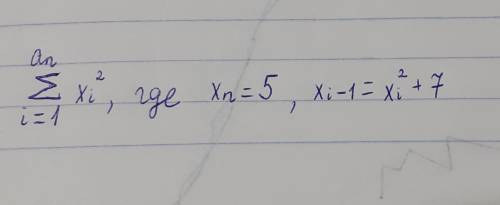 an
∑ xi², где xn = 5, xi-1 = xi² + 7
i=1